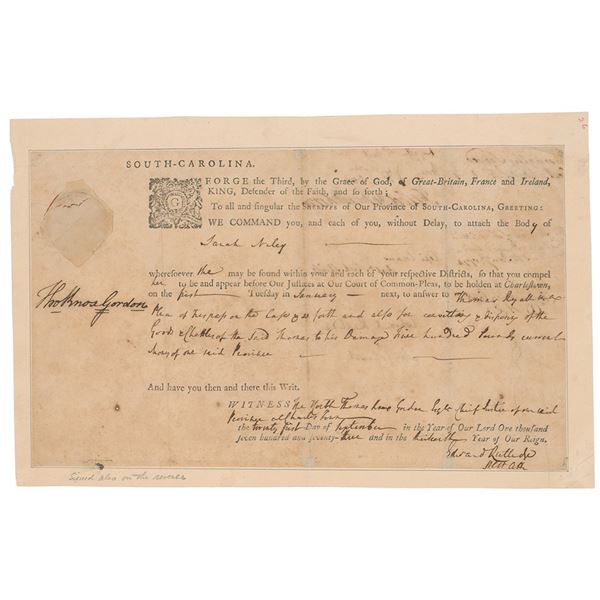 SOUTH-CAROLINA.
GEORGE the Third, by the Grace of God, of Great-Britain, France and Ireland,
KING, Defender of the Faith, and so forth;
To all and singular the SHERIFFS of Our Province of SOUTH-CAROLINA, GREETING:
WE COMMAND you, and each of you, without Delay, to attach the Body of
Sarah
wheresoever she may be found within your and each of your respective Districts, so that you compel
her to be and appear before Our Justices at Our Court of Common-Pleas, to be holden at Charlestown,
on the first Tuesday in January next, to answer to Thomas Ryall in a
Plea of Trespass on the Case &c so forth and also for converting & disposing of the
Goods & Chattles of the said Thomas to his Damage Five hundred Pounds current
Money of our said Province
Thos Knox Gordon
And have you then and there this Writ.
WITNESS The Honble Thomas Knox Gordon Esqr Chief Justice of our said
Province at Charles Town
the twenty first Day of September in the Year of Our Lord One thousand
seven hundred and seventy-three and in the thirteenth Year of Our Reign.
Edward Rutledge
Signed also on the reverse